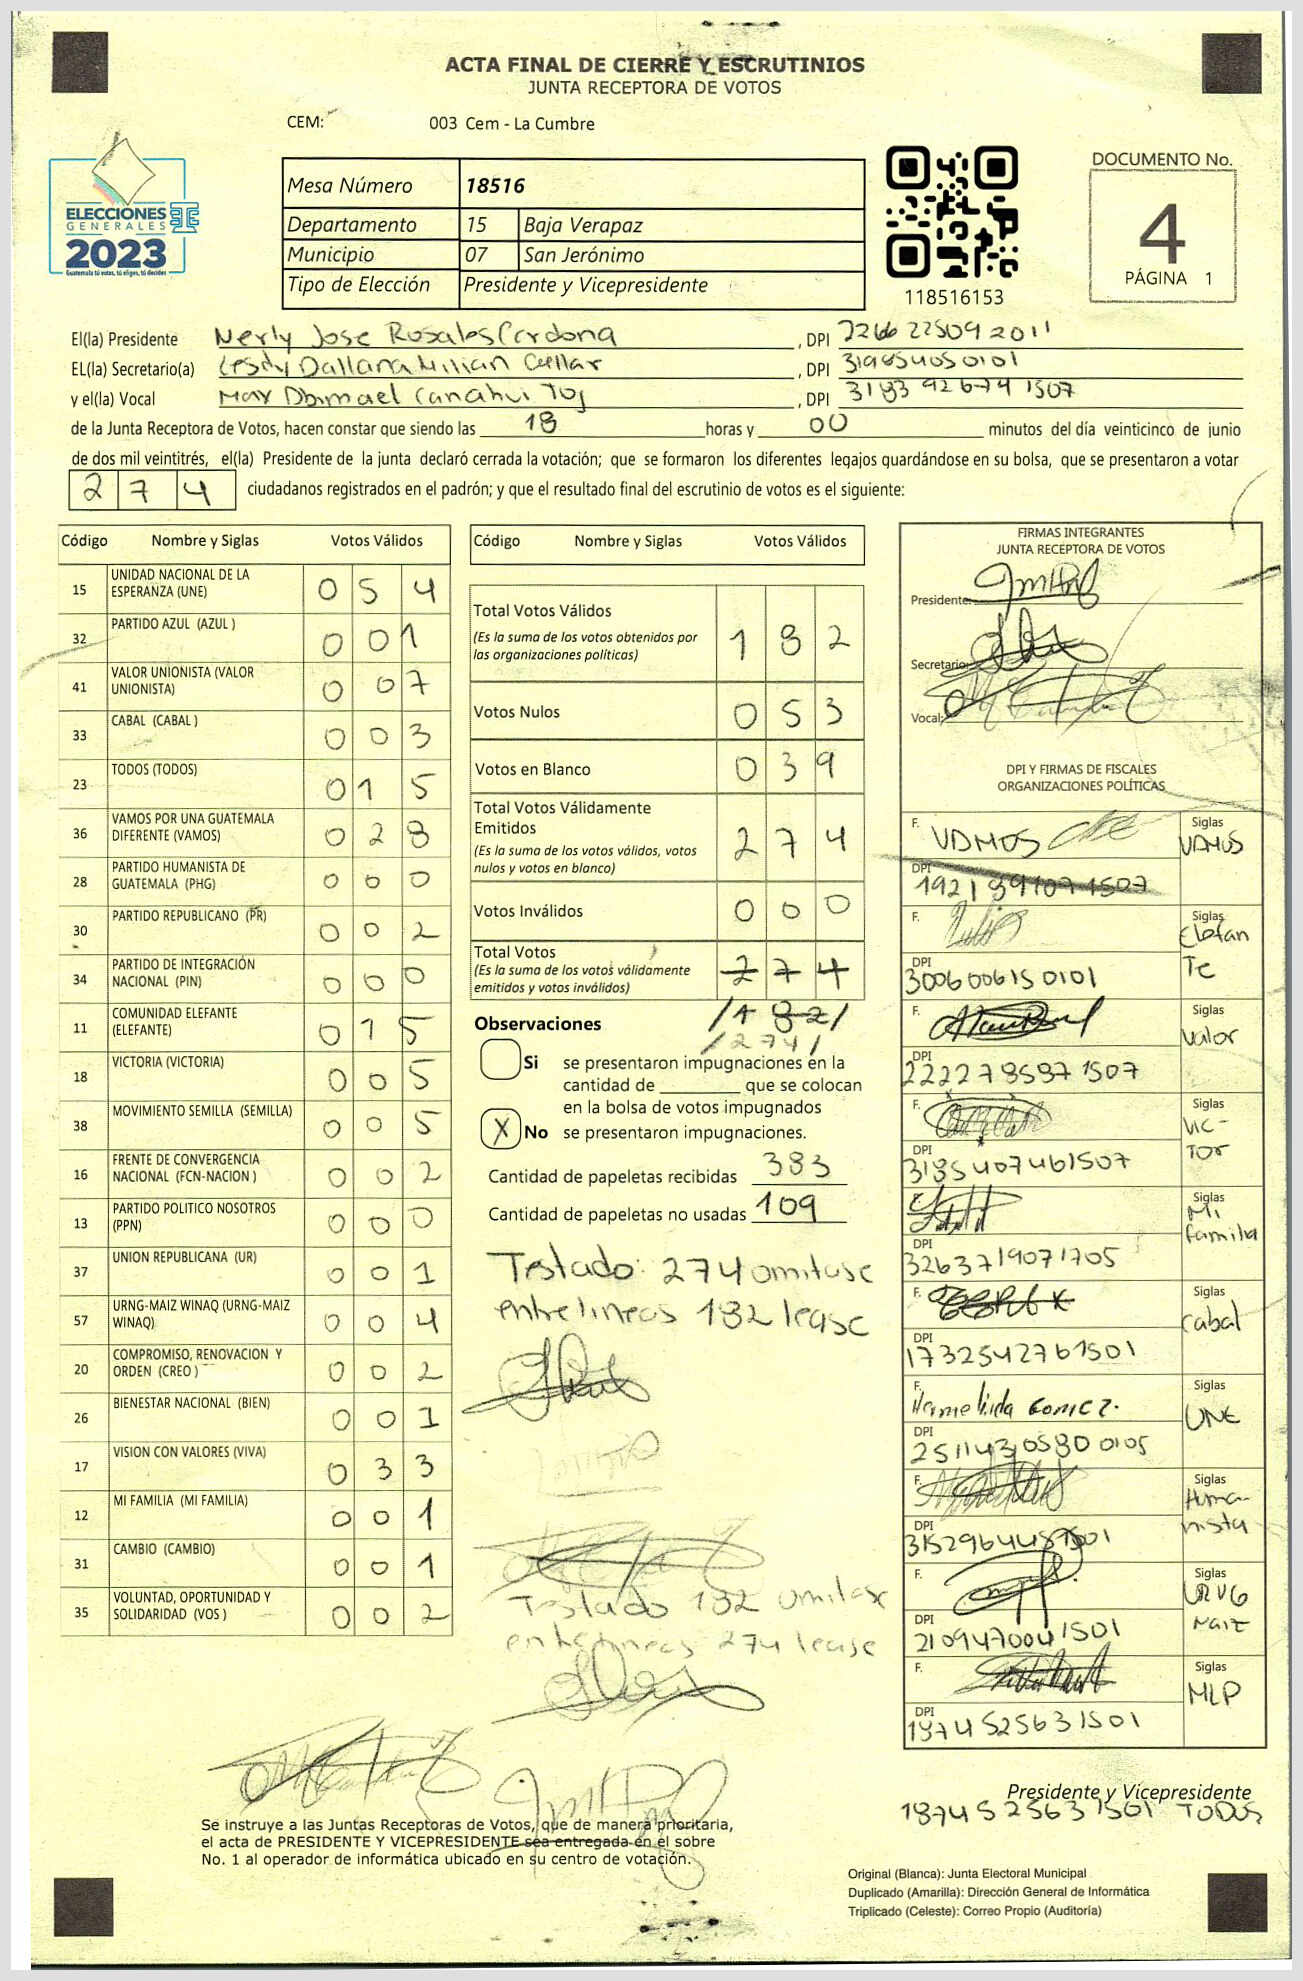 ACTA FINAL DE CIERRE Y ESCRUTINIOS
JUNTA RECEPTORA DE VOTOS
CEM: 003 Cem - La Cumbre
ELECCIONES
GENERALES
2023
Guatemala tú votas, tú eliges, tú decides
Mesa Número 18516
Departamento 15 Baja Verapaz
Municipio 07 San Jerónimo
Tipo de Elección Presidente y Vicepresidente
118516153
DOCUMENTO No.
4
PÁGINA 1
El(la) Presidente Nerly Jose Rosales Cardona , DPI 2266 22509 2011
EL(la) Secretario(a) Lesdy Dallana Milian Cuellar , DPI 319854050101
y el(la) Vocal Max Dbimael Canahui Toj , DPI 3183 92674 1507
de la Junta Receptora de Votos, hacen constar que siendo las 18 horas y 00 minutos del día veinticinco de junio
de dos mil veintitrés, el(la) Presidente de la junta declaró cerrada la votación; que se formaron los diferentes legajos guardándose en su bolsa, que se presentaron a votar
274 ciudadanos registrados en el padrón; y que el resultado final del escrutinio de votos es el siguiente:
Código Nombre y Siglas Votos Válidos
15 UNIDAD NACIONAL DE LA ESPERANZA (UNE) 0 5 4
32 PARTIDO AZUL (AZUL ) 0 0 1
41 VALOR UNIONISTA (VALOR UNIONISTA) 0 0 7
33 CABAL (CABAL ) 0 0 3
23 TODOS (TODOS) 0 1 5
36 VAMOS POR UNA GUATEMALA DIFERENTE (VAMOS) 0 2 8
28 PARTIDO HUMANISTA DE GUATEMALA (PHG) 0 0 0
30 PARTIDO REPUBLICANO (PR) 0 0 2
34 PARTIDO DE INTEGRACIÓN NACIONAL (PIN) 0 0 0
11 COMUNIDAD ELEFANTE (ELEFANTE) 0 1 5
18 VICTORIA (VICTORIA) 0 0 5
38 MOVIMIENTO SEMILLA (SEMILLA) 0 0 5
16 FRENTE DE CONVERGENCIA NACIONAL (FCN-NACION ) 0 0 2
13 PARTIDO POLITICO NOSOTROS (PPN) 0 0 0
37 UNION REPUBLICANA (UR) 0 0 1
57 URNG-MAIZ WINAQ (URNG-MAIZ WINAQ) 0 0 4
20 COMPROMISO, RENOVACION Y ORDEN (CREO ) 0 0 2
26 BIENESTAR NACIONAL (BIEN) 0 0 1
17 VISION CON VALORES (VIVA) 0 3 3
12 MI FAMILIA (MI FAMILIA) 0 0 1
31 CAMBIO (CAMBIO) 0 0 1
35 VOLUNTAD, OPORTUNIDAD Y SOLIDARIDAD (VOS ) 0 0 2
Código Nombre y Siglas Votos Válidos
Total Votos Válidos 1 8 2
(Es la suma de los votos obtenidos por
las organizaciones políticas)
Votos Nulos 0 5 3
Votos en Blanco 0 3 9
Total Votos Válidamente
Emitidos 2 7 4
(Es la suma de los votos válidos, votos
nulos y votos en blanco)
Votos Inválidos 0 0 0
Total Votos 2 7 4
(Es la suma de los votos válidamente
emitidos y votos inválidos)
/1 82/
/274/
Observaciones
Si se presentaron impugnaciones en la
cantidad de ________ que se colocan
en la bolsa de votos impugnados
X No se presentaron impugnaciones.
Cantidad de papeletas recibidas 383
Cantidad de papeletas no usadas 109
Testado: 274 omitase
entrelineas 182 lease
Testado 182 omitase
entrelineas 274 lease
FIRMAS INTEGRANTES
JUNTA RECEPTORA DE VOTOS
Presidente:
Secretario:
Vocal:
DPI Y FIRMAS DE FISCALES
ORGANIZACIONES POLÍTICAS
F. VAMOS Siglas VAMOS
DPI 1921 89107 1507
F. Siglas Elefante
DPI 300600615 0101
F. Siglas Valor
DPI 222278587 1507
F. Siglas Victor
DPI 3185407461507
F. Siglas Mi familia
DPI 3263719071705
F. Siglas Cabal
DPI 1732542761501
F. Hermelinda Gomez. Siglas UNE
DPI 251143058 0 0105
F. Siglas Humanista
DPI
F. Siglas URNG Maiz
DPI 2109470041501
F. Siglas MLP
DPI 1874525631501
Presidente y Vicepresidente
1874525631501 TODOS
Se instruye a las Juntas Receptoras de Votos, que de manera prioritaria,
el acta de PRESIDENTE Y VICEPRESIDENTE sea entregada en el sobre
No. 1 al operador de informática ubicado en su centro de votación.
Original (Blanca): Junta Electoral Municipal
Duplicado (Amarilla): Dirección General de Informática
Triplicado (Celeste): Correo Propio (Auditoría)